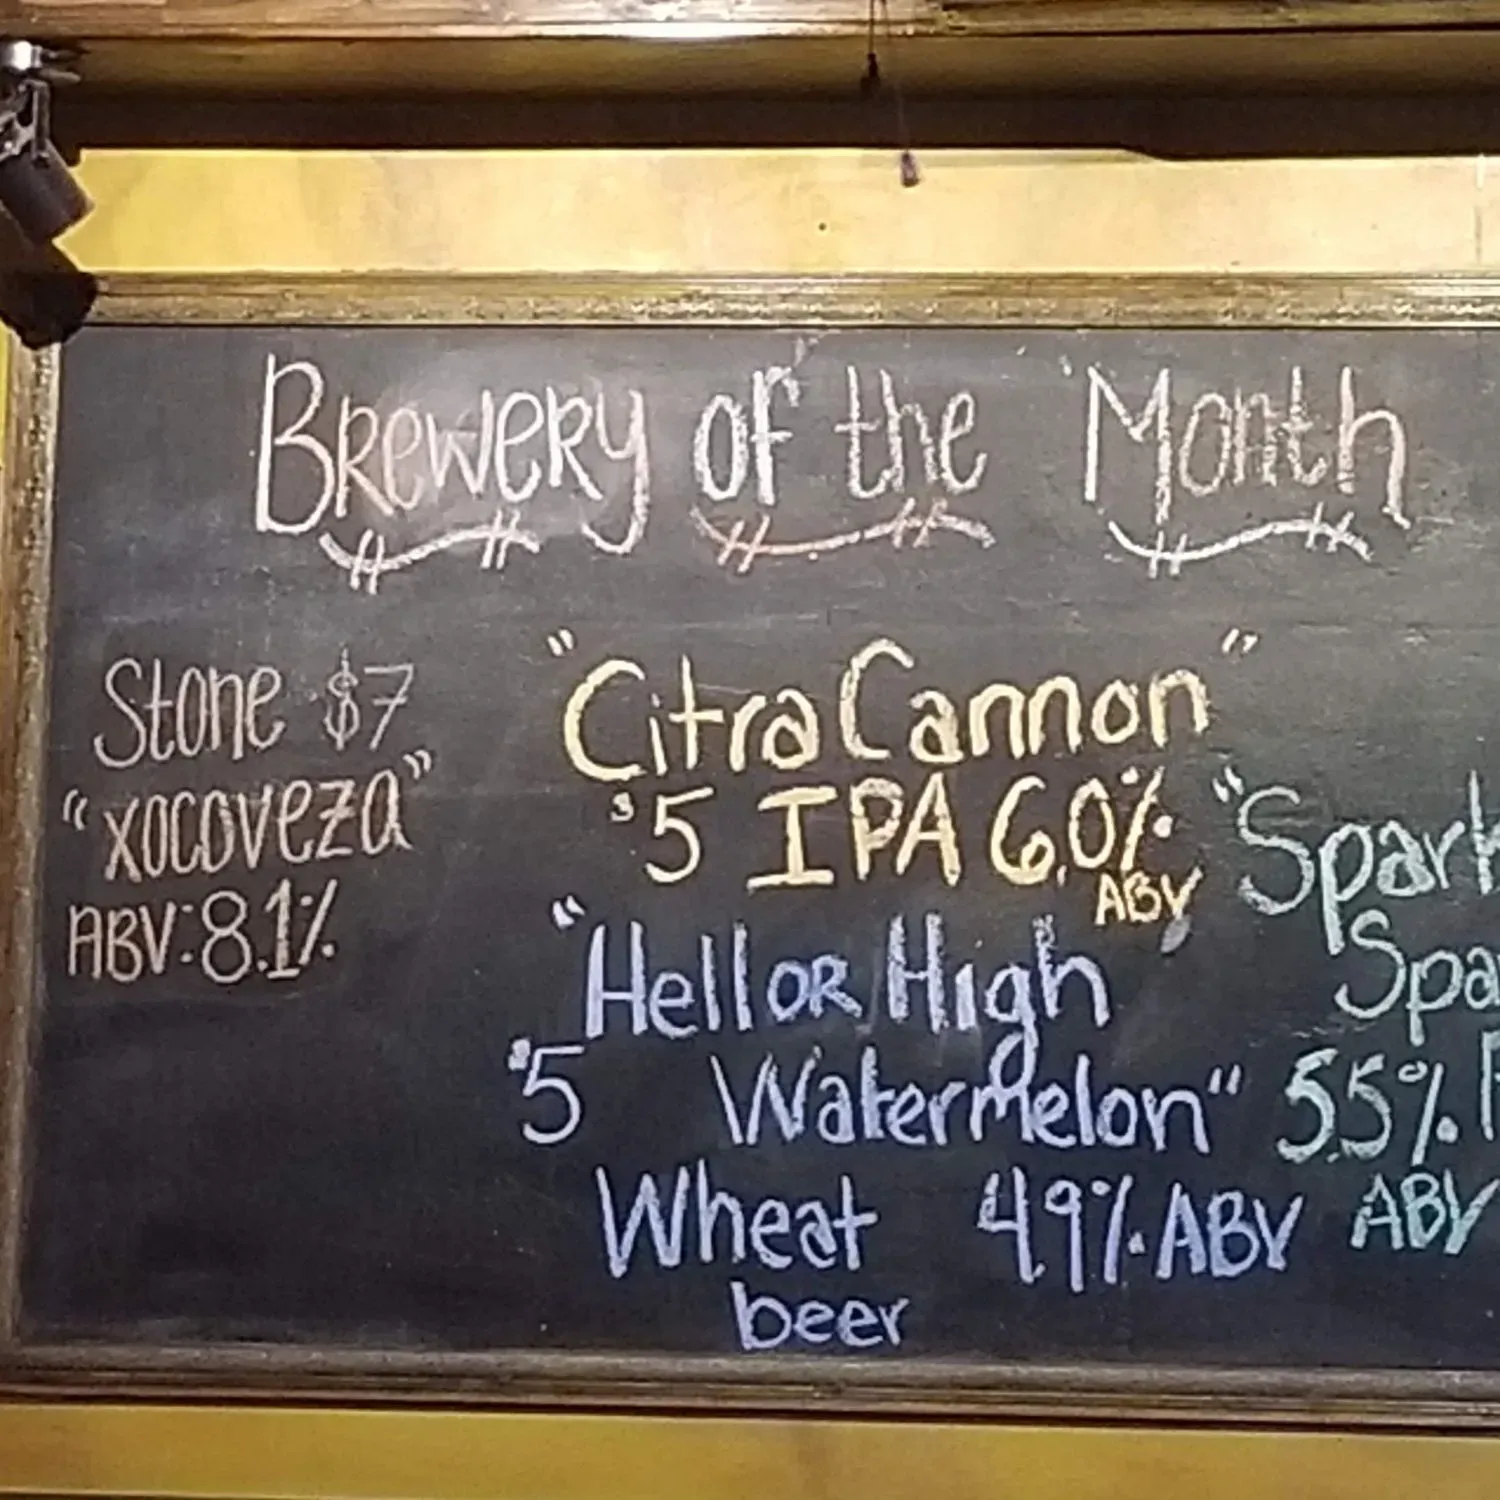 Brewery of the Month
Stone $7
"xocoveza"
ABV: 8.1%
"Citra Cannon"
$5 IPA 6.0%
ABV
"Hell or High
$5 Watermelon"
Wheat 4.9% ABV
beer
5.5%
ABV